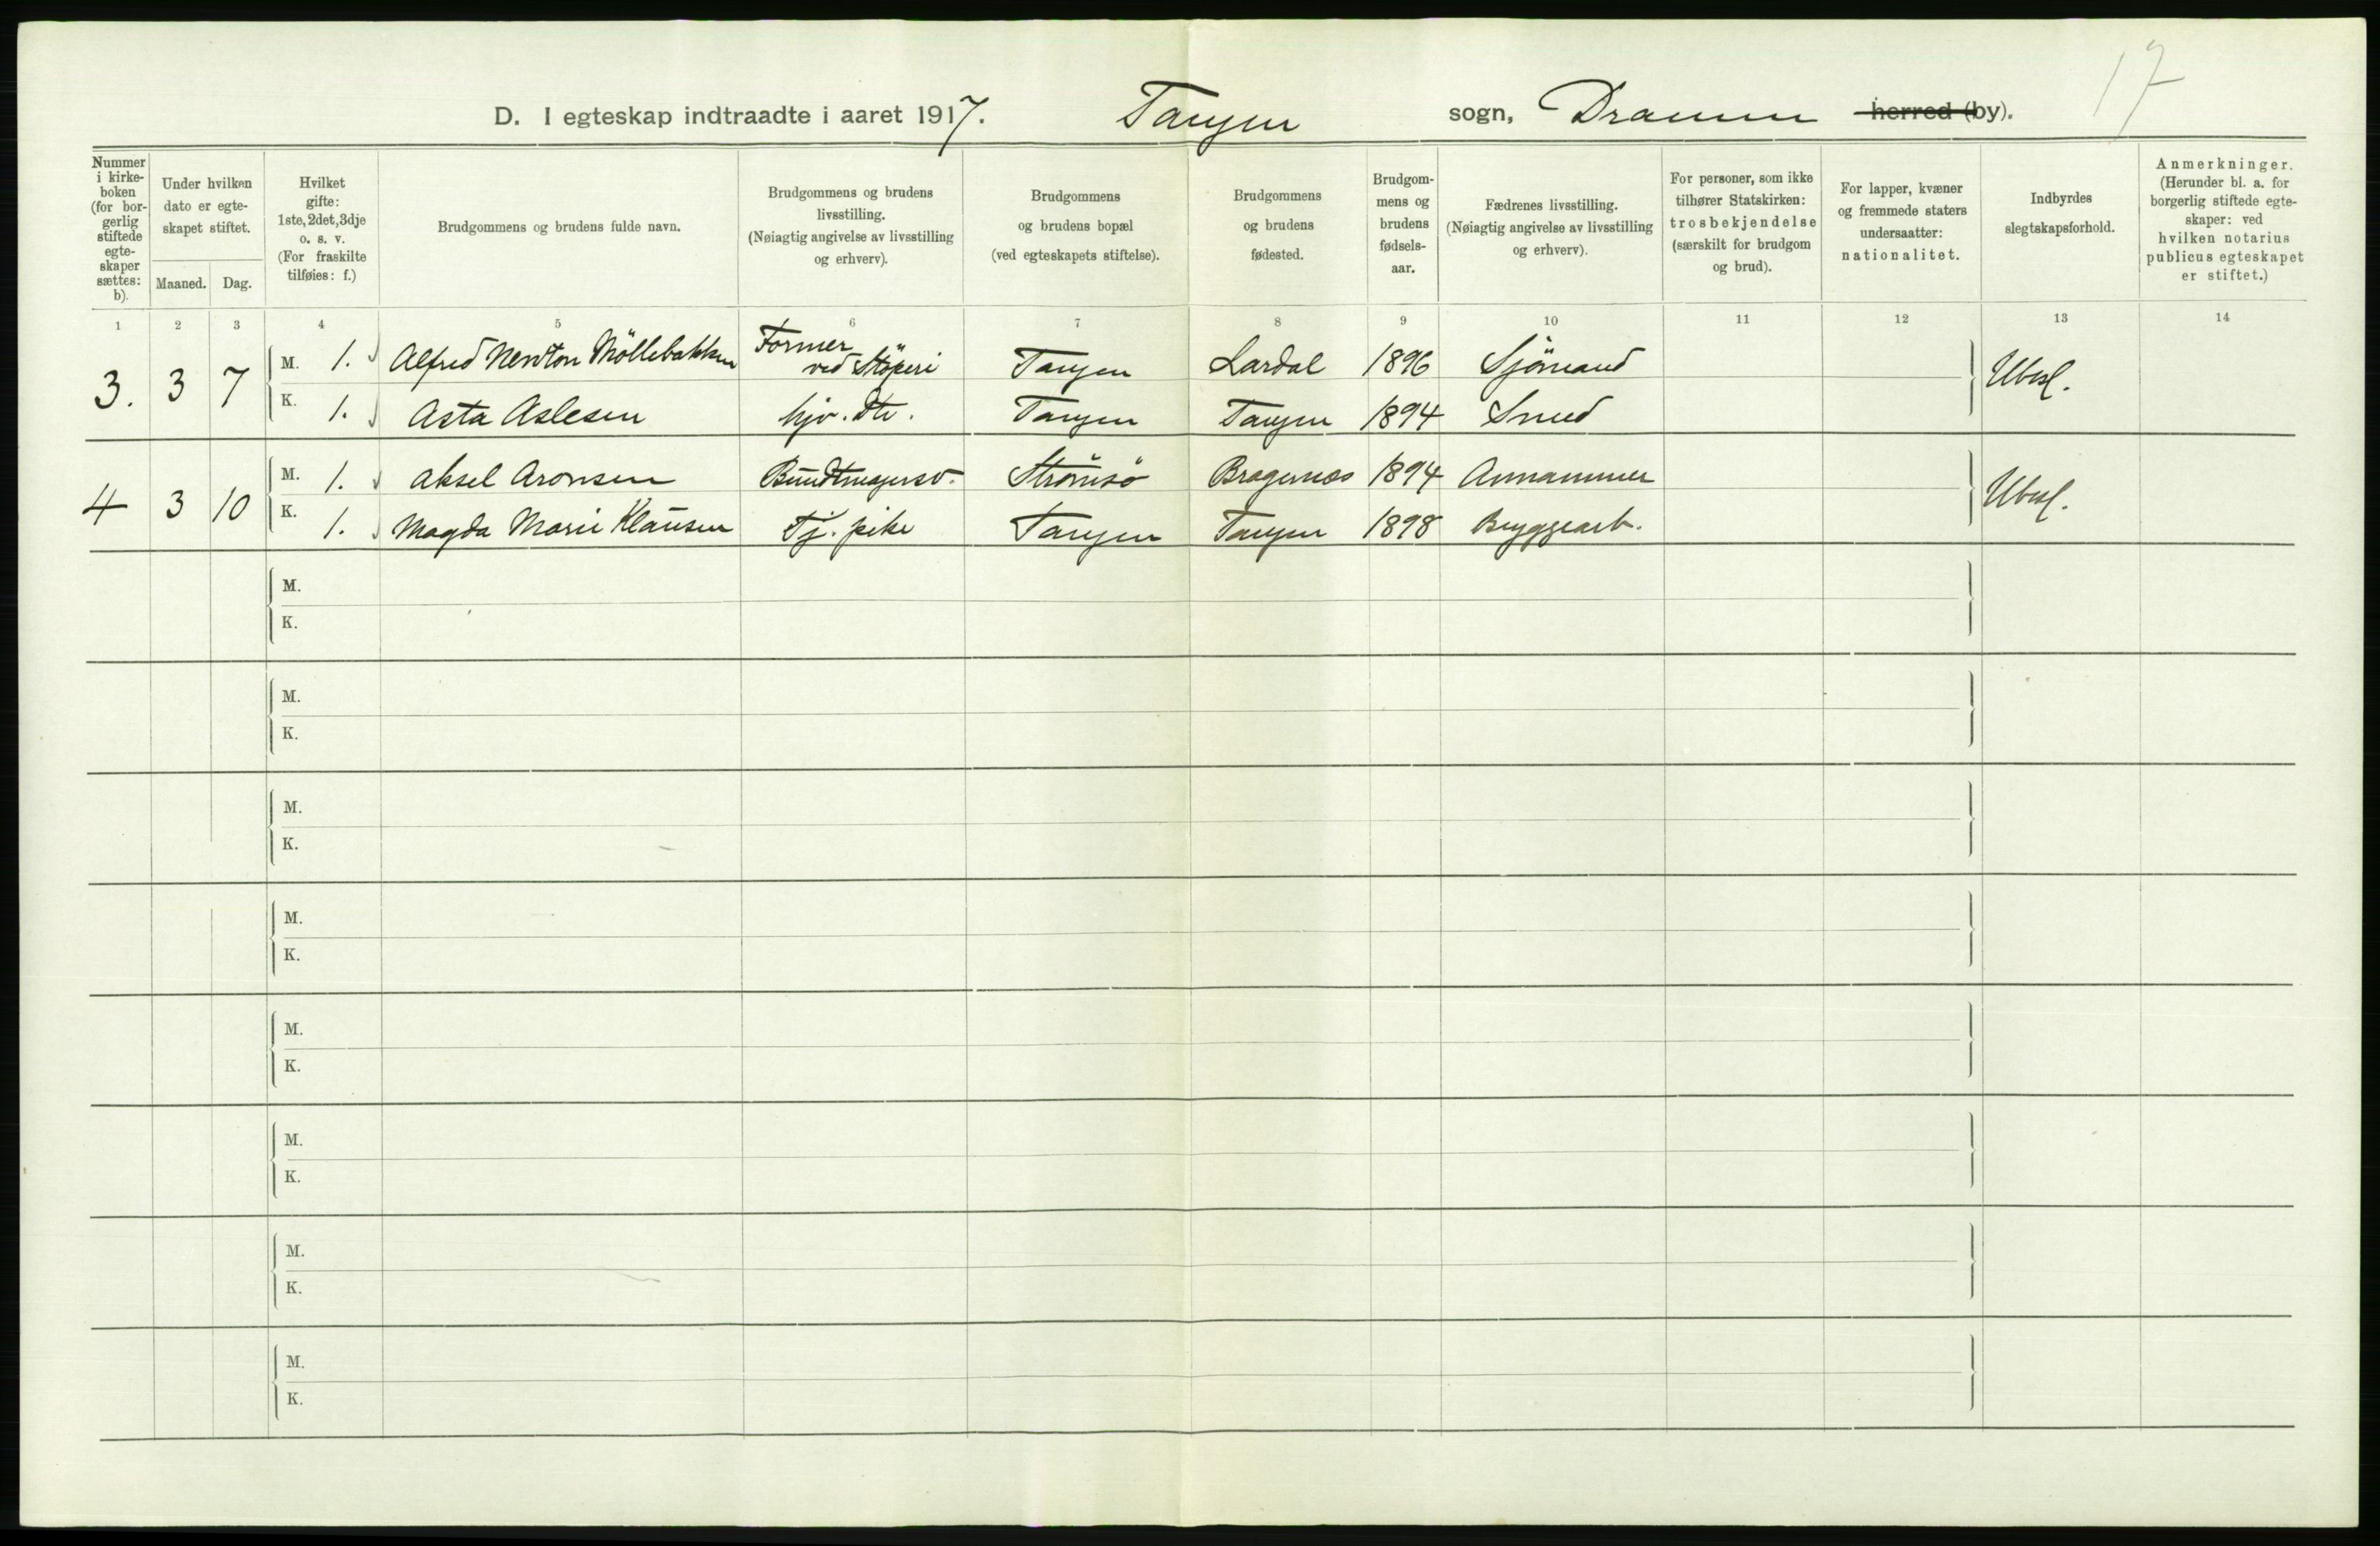 17
D. I egteskap indtraadte i aaret 1917. Tangen sogn, Drammen herred (by).
Nummer i kirke-boken (for bor-gerlig stiftede egte-skaper sættes: b).
Under hvilken dato er egte-skapet stiftet.
Maaned. Dag.
Hvilket gifte: 1ste, 2det, 3dje o. s. v. (For fraskilte tilføies: f.)
Brudgommens og brudens fulde navn.
Brudgommens og brudens livsstilling. (Nøiagtig angivelse av livsstilling og erhverv).
Brudgommens og brudens bopæl (ved egteskapets stiftelse).
Brudgommens og brudens fødested.
Brudgom-mens og brudens fødsels-aar.
Fædrenes livsstilling. (Nøiagtig angivelse av livsstilling og erhverv).
For personer, som ikke tilhører Statskirken: trosbekjendelse (særskilt for brudgom og brud).
For lapper, kvæner og fremmede staters undersaatter: nationalitet.
Indbyrdes slegtskapsforhold.
Anmerkninger. (Herunder bl. a. for borgerlig stiftede egte-skaper: ved hvilken notarius publicus egteskapet er stiftet.)
1 2 3 4 5 6 7 8 9 10 11 12 13 14
3. 3 7 M. 1. Alfred Newton Möllebakken Former ved Støperi Tangen Lardal 1896 Sjömand Ubesl.
K. 1. Asta Aslesen hjv. dtr. Tangen Tangen 1894 Smed
4 3 10 M. 1. Aksel Aronsen Buntmagersv. Strömsö Bragernes 1894 Ubesl.
K. 1. Magda Marie Klausen Tj. pike Tangen Tangen 1898 Bryggearb.
M.
K.
M.
K.
M.
K.
M.
K.
M.
K.
M.
K.
M.
K.
M.
K.